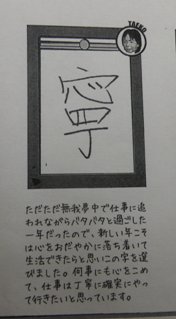 TAEKO
寧
ただただ無我夢中で仕事に追
われながらバタバタと過ごした
一年だったので、新しい年こそ
は心をおだやかに落ち着いて
生活できたらと思いこの字を選
びました。何事にも心をこめ
て、仕事は丁寧に確実にやっ
て行きたいと思っています。